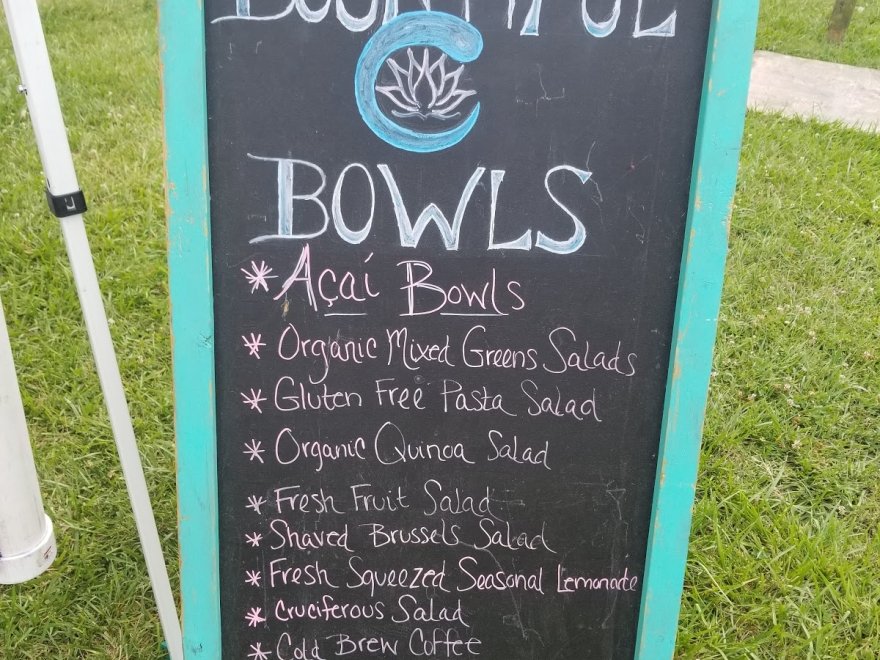 BOUNTIFUL
BOWLS
* Açaí Bowls
* Organic Mixed Greens Salads
* Gluten Free Pasta Salad
* Organic Quinoa Salad
* Fresh Fruit Salad
* Shaved Brussels Salad
* Fresh Squeezed Seasonal Lemonade
* Cruciferous Salad
* Cold Brew Coffee